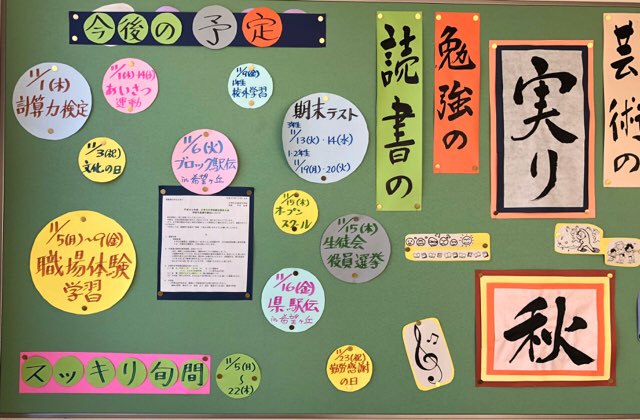 今後の予定
11/1(木)
計算力検定
11/1(木)-14(水)
あいさつ
運動
11/9(金)
1年生
校外学習
期末テスト
3年生
11/13(火)・14(水)
1・2年生
11/19(月)・20(火)
11/3(祝)
文化の日
11/6(火)
ブロック駅伝
in 希望ヶ丘
11/15(木)
オープン
スクール
11/15(木)
生徒会
役員選挙
11/5(月)~9(金)
職場体験
学習
11/16(金)
県駅伝
in 希望ヶ丘
11/23(祝)
勤労感謝
の日
スッキリ旬間
11/5(月)
~
22(木)
読書の
勉強の
実り
芸術の
秋